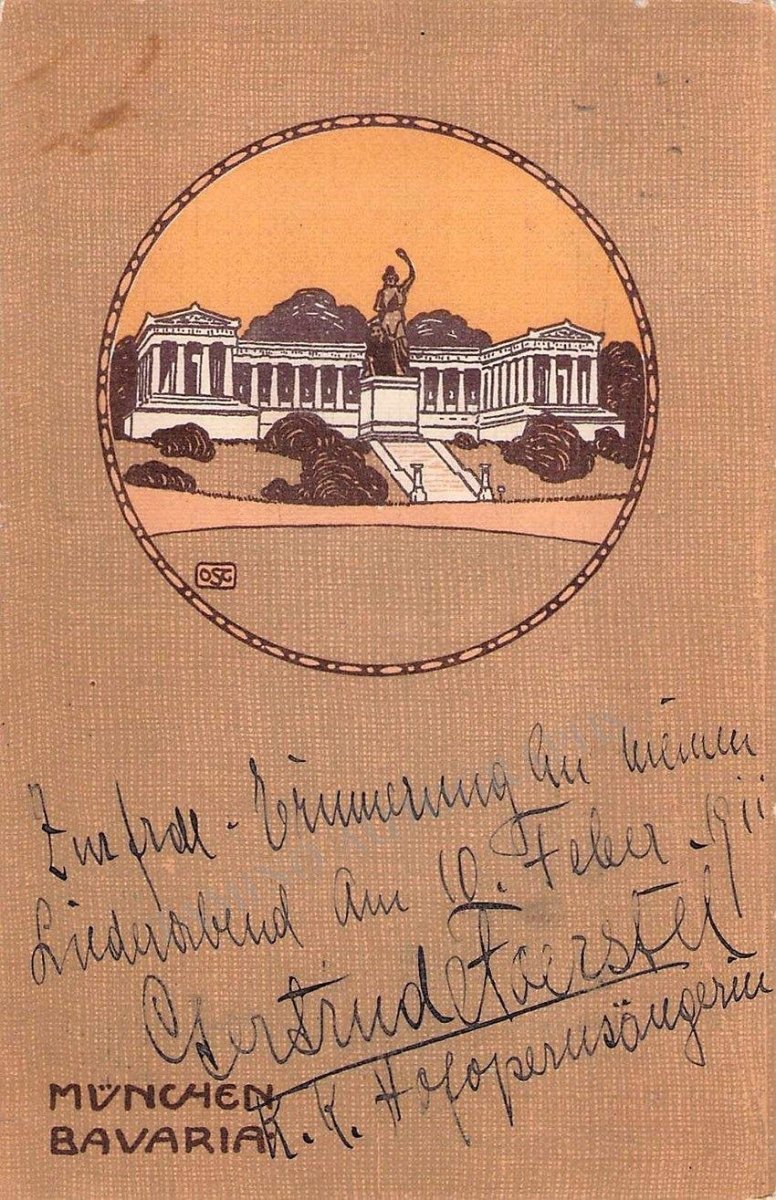 OSC
Zur frdl. Erinnerung an meinen
Liederabend am 10. Feber 1911
Gertrude Foerstel
K. K. Hofopernsängerin
MÜNCHEN
BAVARIA